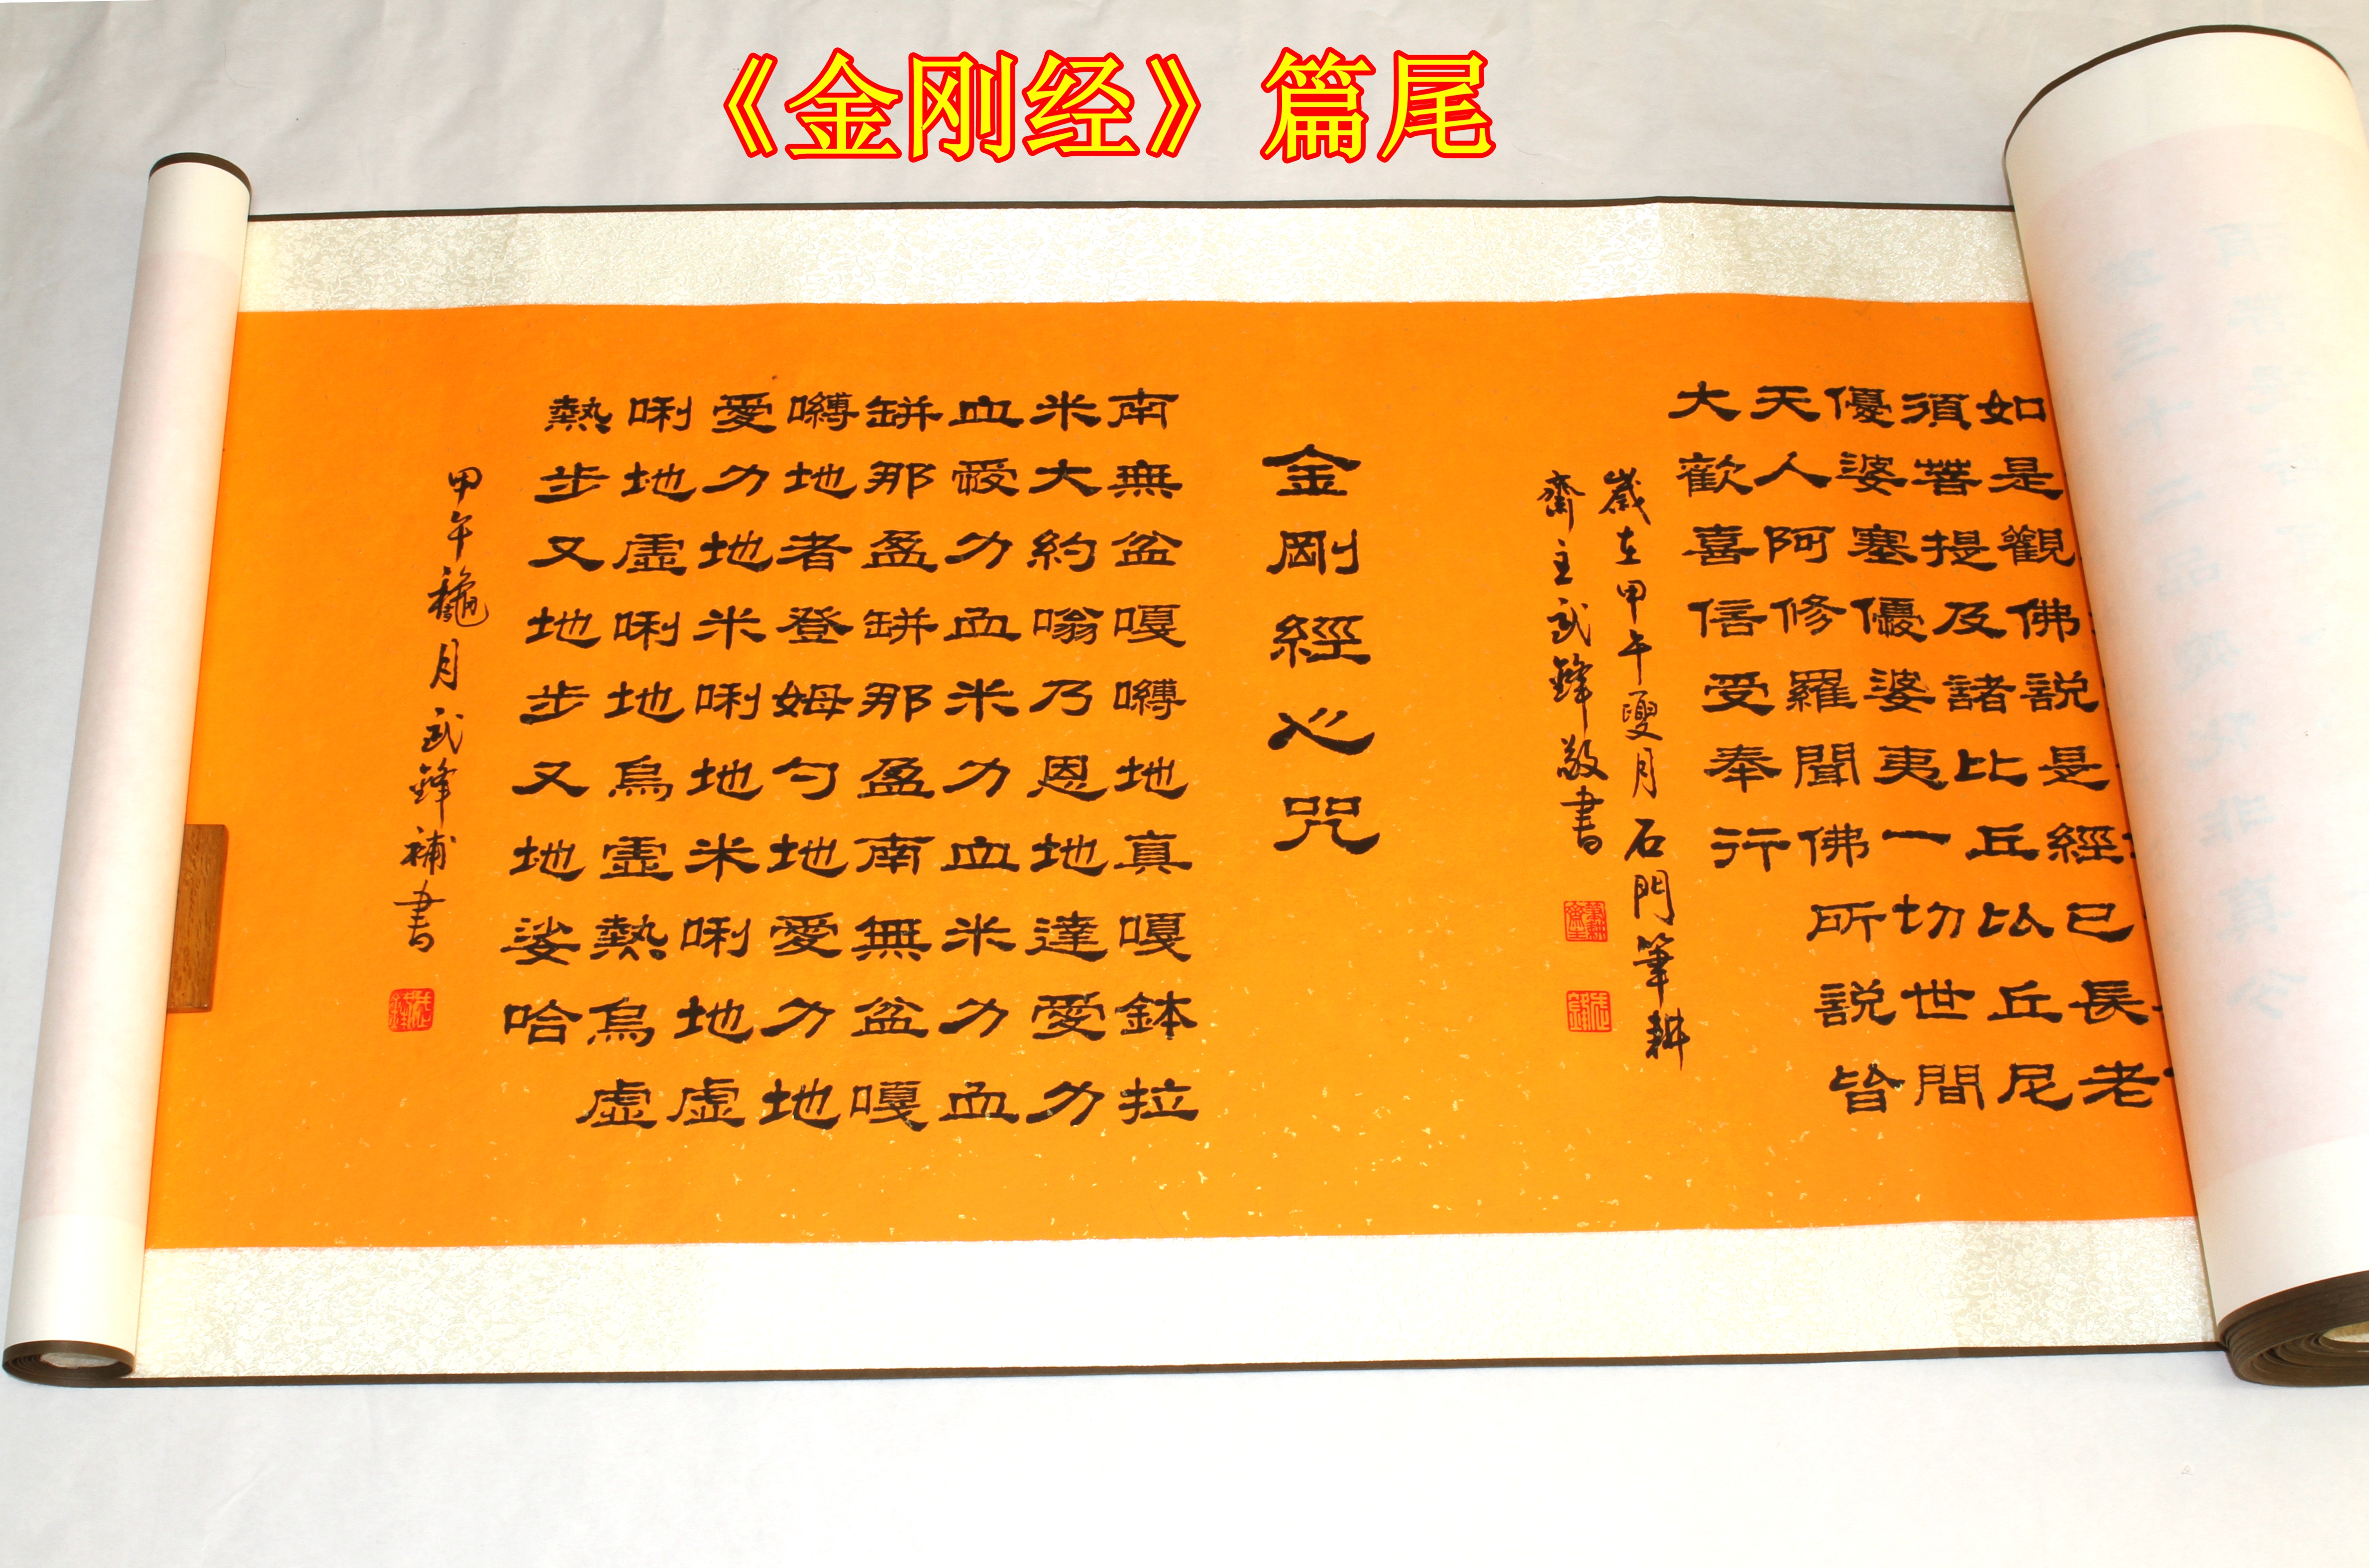 《金刚经》篇尾
如是觀佛説是經已長老
須菩提及諸比丘比丘尼
優婆塞優婆夷一切世間
天人阿修羅聞佛所説皆
大歡喜信受奉行
歲在甲午夏月石門筆耕
齋主武鋒敬書
金剛經心咒
南無盆嘎嚩地真嘎鉢拉
米大約嗡乃恩地達愛力
血愛力血米力血米力血
缾那盈缾那盈南無盆嘎
嚩地者登姆勺地愛力地
愛力地米唎地米唎地虛
唎地虛唎地烏虛熱烏虛
熱步又地步又地娑哈
甲午龝月武鋒補書